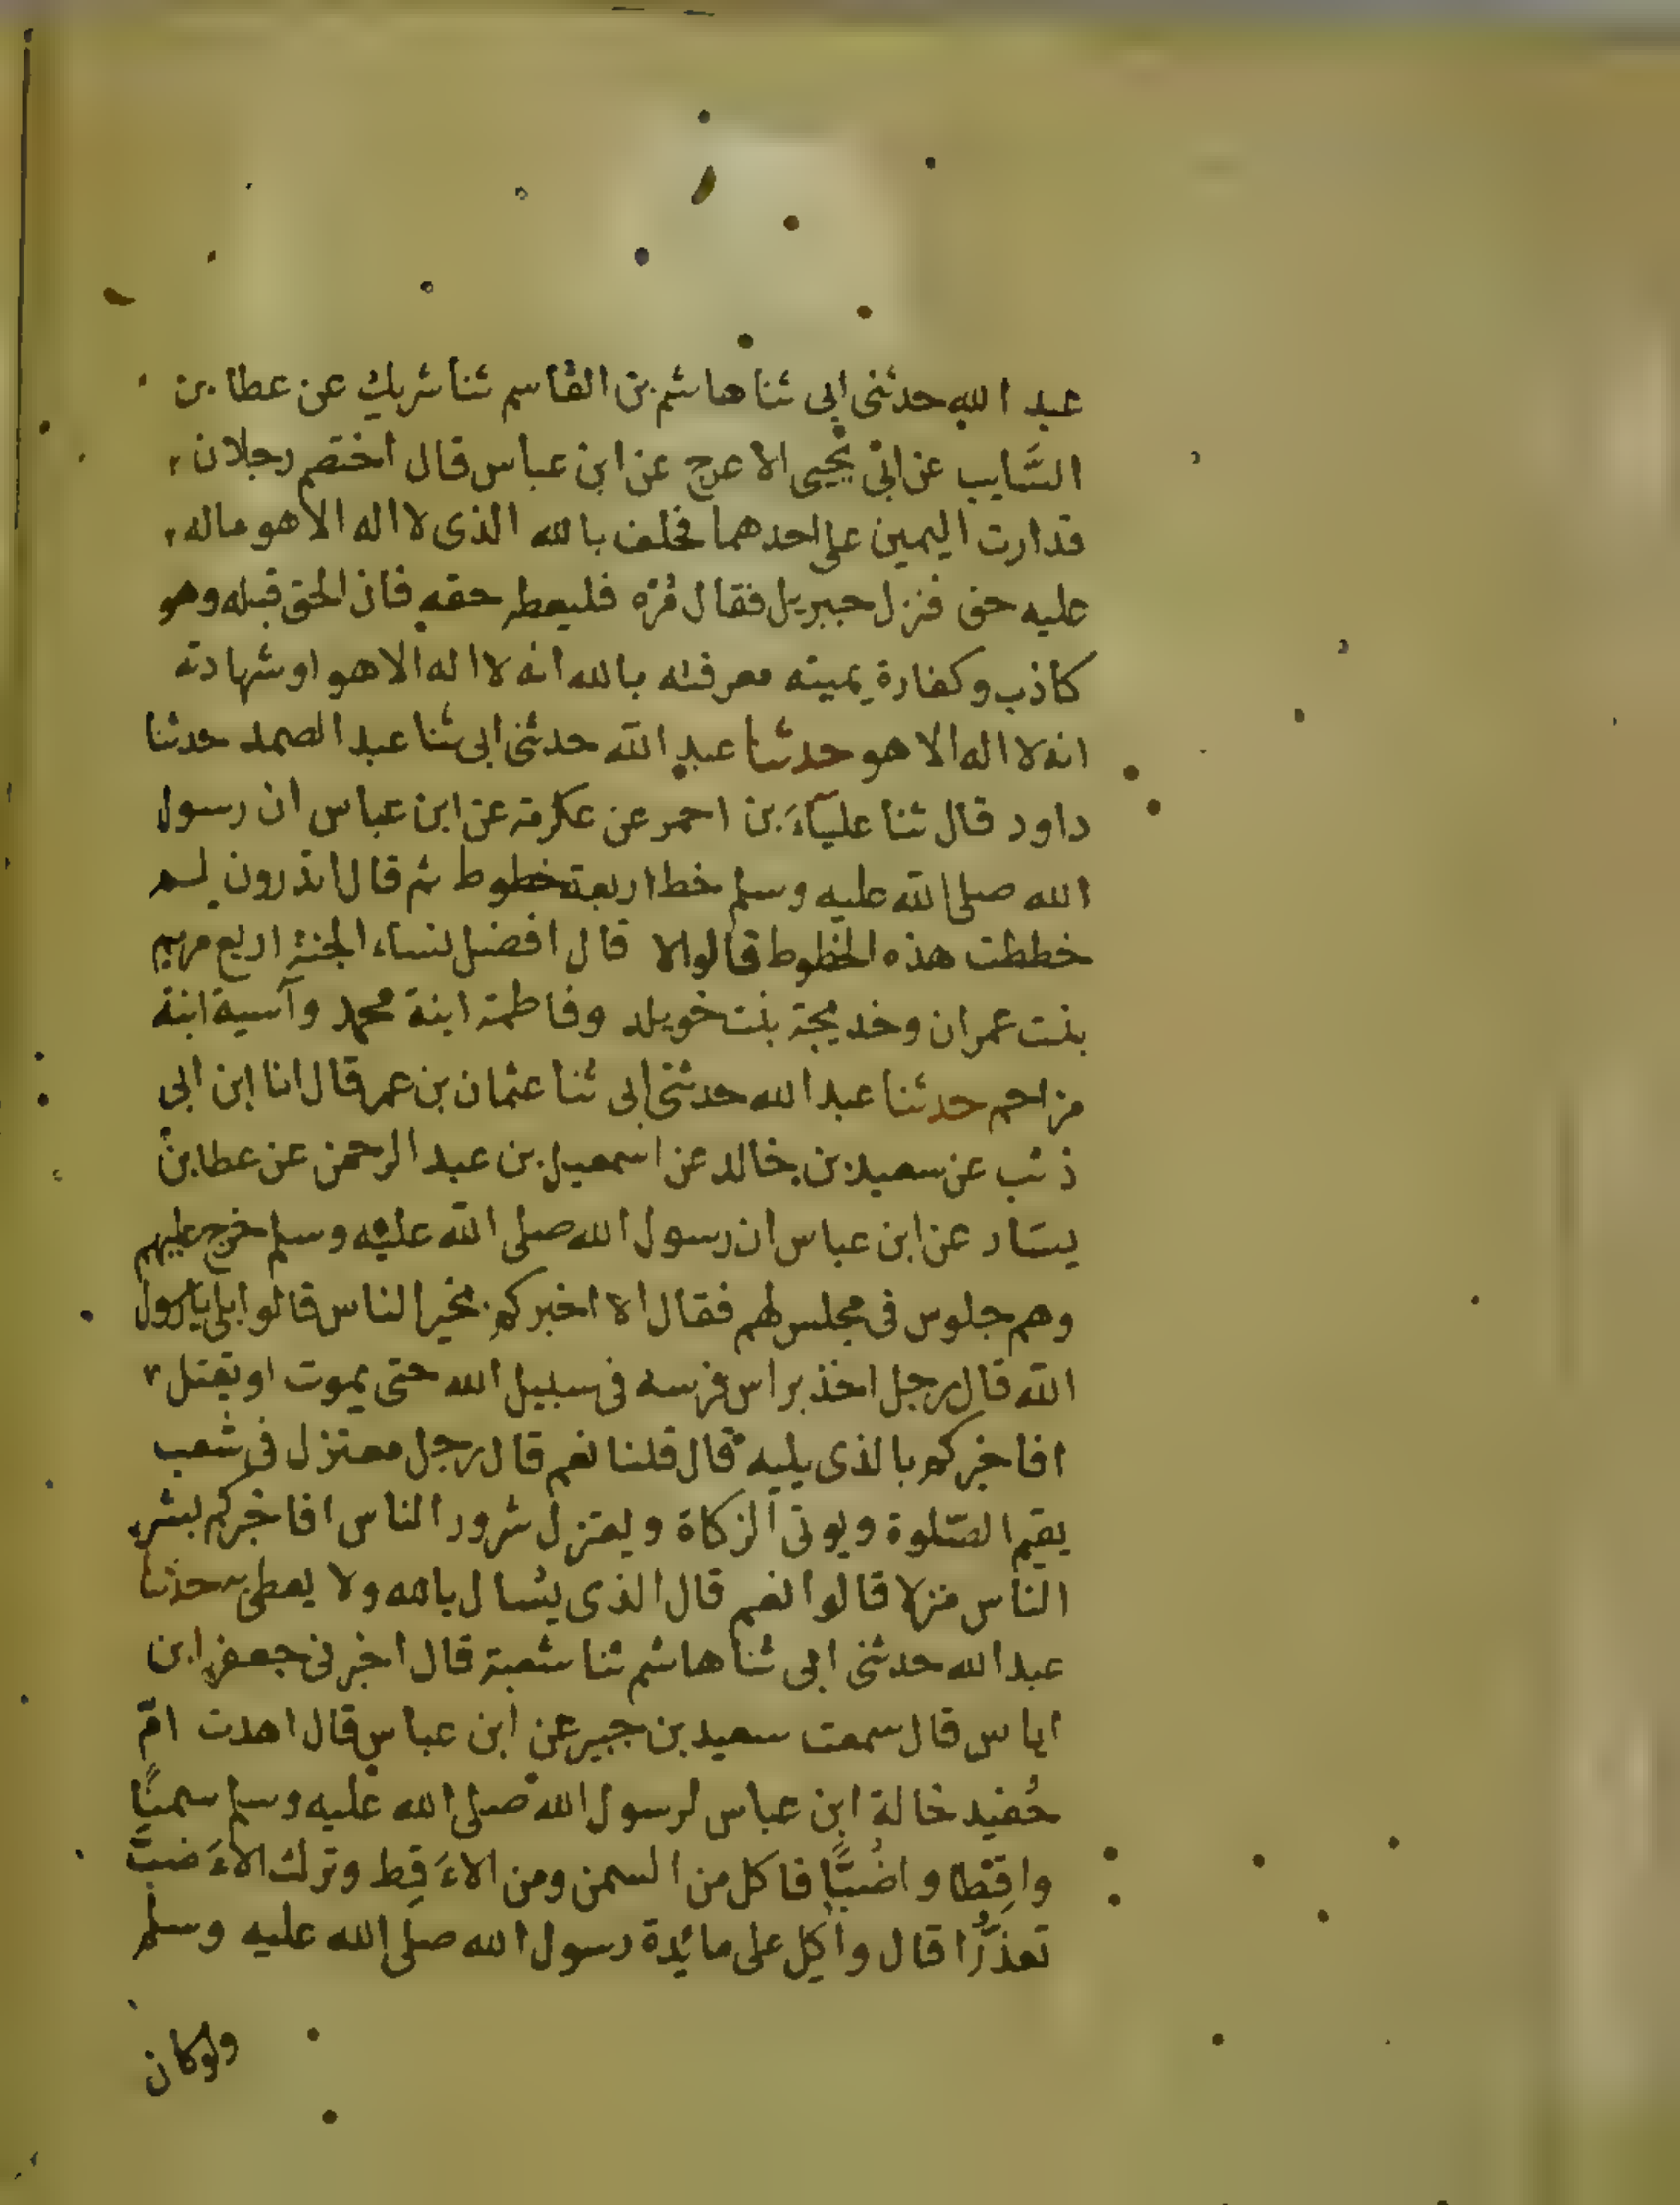 عبد الله حدثنى ابى ثنا هاشم بن القاسم ثنا شريك عن عطا بن
السَّايب عن ابى يحيى الاعرج عن ابن عباس قال اختصم رجلان
فدارت اليمين على احدهما فحلف بالله الذى لا اله الا هو ماله
عليه حق فنزل جبريل فقال مُرْه فليعطه حقه فان الحق قبله وهو
كاذب وكفارة يمينه معرفته بالله انه لا اله الا هو او شهادته
انه لا اله الا هو حدثنا عبد الله حدثنى ابى ثنا عبد الصمد حدثنا
داود قال ثنا علباءَ بن احمر عن عكرمة عن ابن عباس ان رسول
الله صلى الله عليه وسلم خط اربعة خطوط ثم قال اتدرون لم
خططت هذه الخطوط قالوا لا قال افضل نساء الجنة اربع مريم
بنت عمران وخديجة بنت خويلد وفاطمة ابنة محمد وآسية ابنة
مزاحم حدثنا عبد الله حدثنى ابى ثنا عثمان بن عمر قال انا ابن ابى
ذئب عن سعيد بن خالد عن اسمعيل بن عبد الرحمن عن عطا بن
يسَار عن ابن عباس ان رسول الله صلى الله عليه وسلم خرج عليهم
وهم جلوس فى مجلس لهم فقال الا اخبركم بخير الناس قالوا بلى يا رسول
الله قال رجل اخذ براس فرسه فى سبيل الله حتى يموت او يقتل
افاخبركم بالذى يليه قال قلنا نعم قال رجل معتزل فى شعب
يقيم الصّلوة ويوتى الزكاة ويعتزل شرور الناس افاخبركم بشر
الناس منزلا قالوا نعم قال الذى يسال بالله ولا يعطى به حدثنا
عبد الله حدثنى ابى ثنا هاشم ثنا شعبة قال اخبرنى جعفر ابن
اياس قال سمعت سعيد بن جبير عن ابن عباس قال اهدت امّ
حُفيد خالة ابن عباس لرسول الله صلى الله عليه وسلم سمنًا
واقِطا واضُبًّا فاكل من السمن ومن الاءَقِط وترك الاءَضبّ
تعذرًا قال واُكِل على مائدة رسول الله صلى الله عليه وسلم
ولوكان